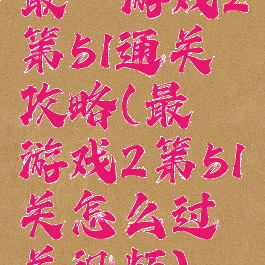 最 游戏2
第51通关
攻略(最
游戏2第51
关怎么过
关视频)